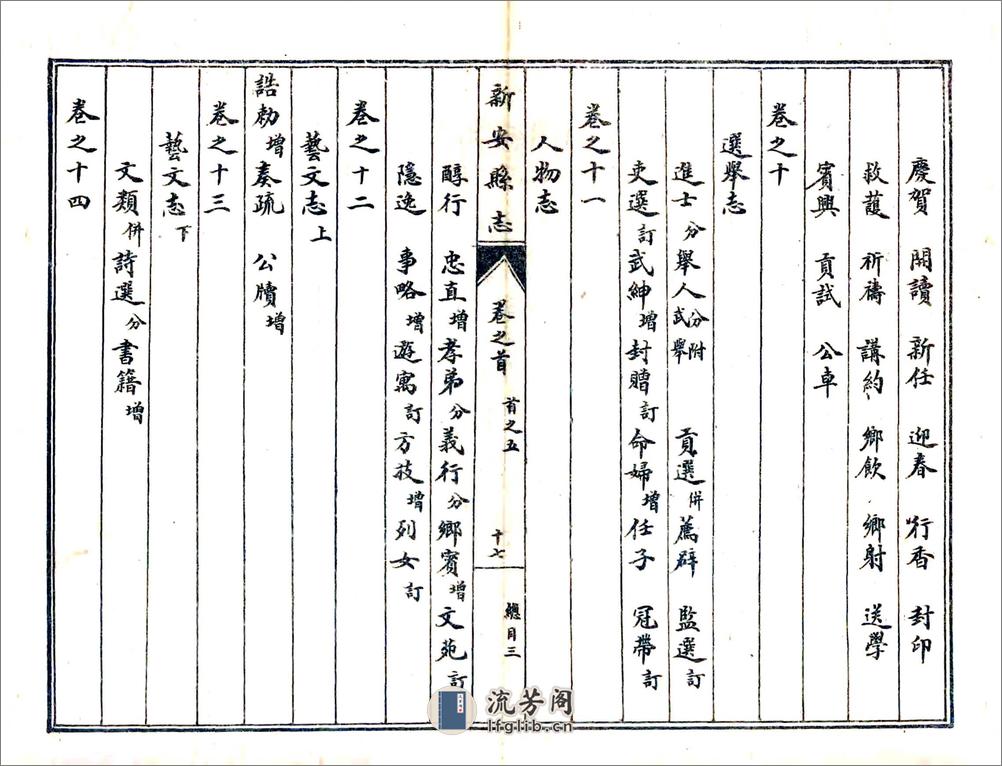 慶賀 開讀 新任 迎春 行香 封印
救護 祈禱 講約 鄉飲 鄉射 送學
賓興 貢試 公車
卷之十
選舉志
進士分舉人分附武舉 貢選併薦辟 監選訂
吏選訂武紳增封贈訂命婦增任子 冠帶訂
卷之十一
人物志
新安縣志 卷之首 首之五 十七 總目三
醇行 忠直增孝弟分義行分鄉賓增文苑訂
隱逸 事略增遊寓訂方技增列女訂
卷之十二
藝文志上
誥勅增奏疏 公牘增
卷之十三
藝文志下
文類併詩選分書籍增
卷之十四
流芳阁
lfglib.cn